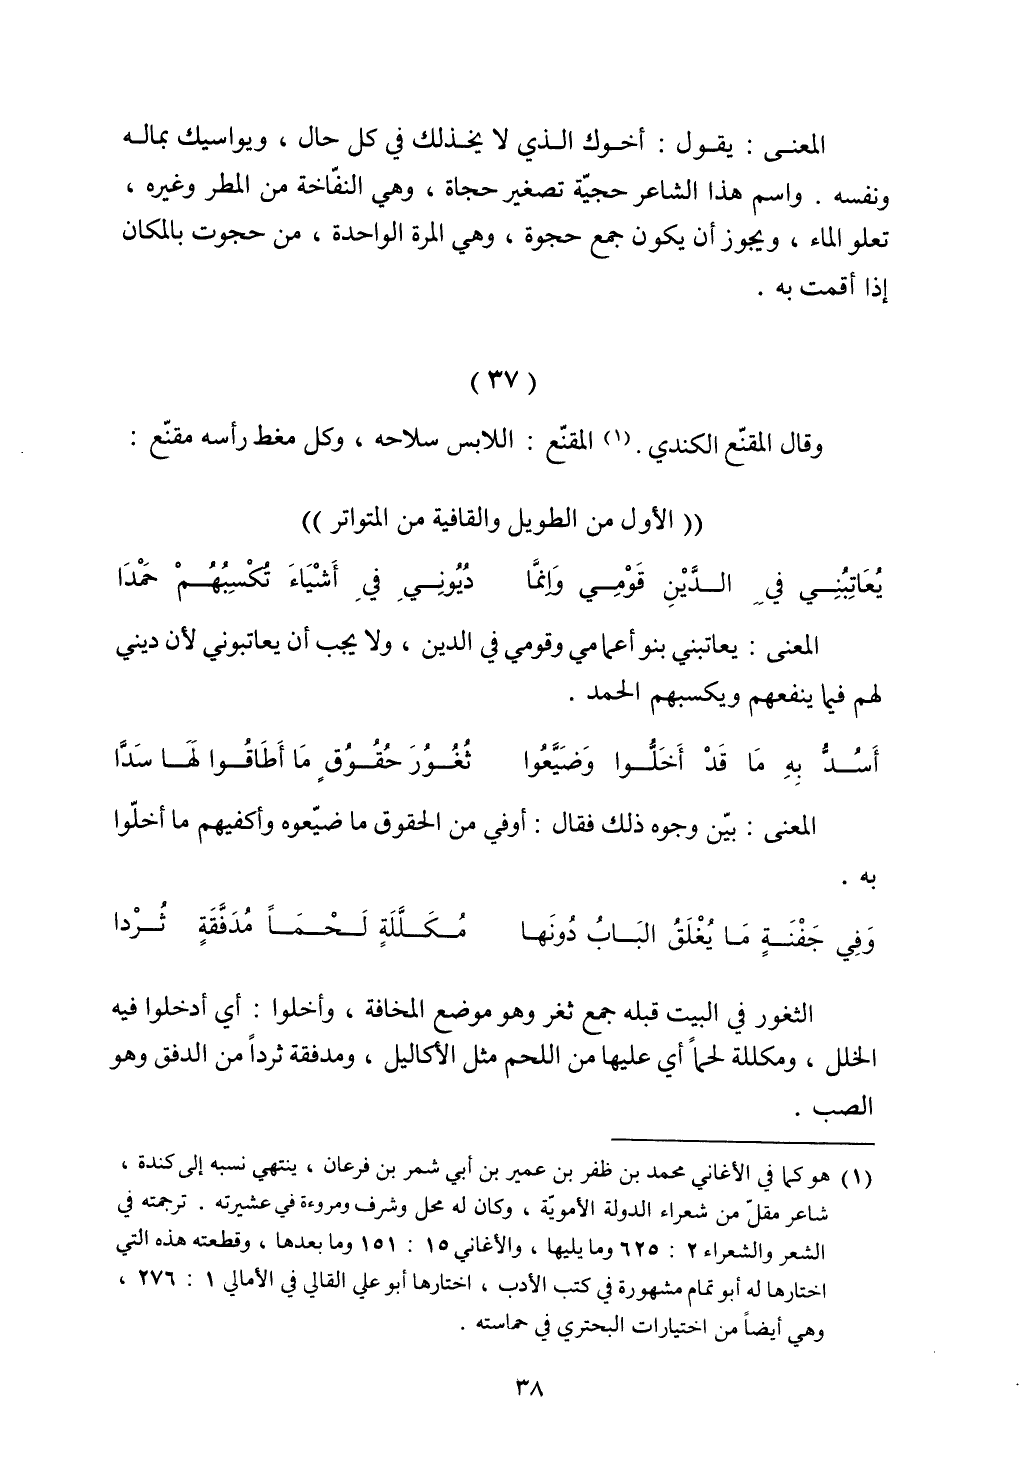 المعنـى : يقـول : أخـوك الـذي لا يخـذلك في كل حال ، ويواسيك بمالـه
ونفسه . واسم هذا الشاعر حجيّة تصغير حجاة ، وهي النفّاخة من المطر وغيره ،
تعلو الماء ، ويجوز أن يكون جمع حجوة ، وهي المرة الواحدة ، من حجوت بالمكان
إذا أقمت به .
( ٣٧ )
وقال المقنّع الكندي . (١) المقنّع : اللابس سلاحه ، وكل مغط رأسه مقنّع :
(( الأول من الطويل والقافية من المتواتر ))
يُعَاتِبُنِــي فيِ الــدَّيْنِ قَوْمِــي وَإِنمَّا دُيُونِــي فيِ أَشْيَاءَ تُكْسِبُهُــمْ حَمْدَا
المعنى : يعاتبني بنو أعمامي وقومي في الدين ، ولا يجب أن يعاتبوني لأن ديني
لهم فيما ينفعهم ويكسبهم الحمد .
أَسُــدُّ بِهِ مَا قَدْ أَخَلُّــوا وَضَيَّعُوا ثُغُــورَ حُقُــوقٍ مَا أَطَاقُــوا لَهَــا سَدَّا
المعنى : بيّن وجوه ذلك فقال : أوفي من الحقوق ما ضيّعوه وأكفيهم ما أخلّوا
به .
وَفِي جَفْنَــةٍ مَـا يُغْلَقُ البَــابُ دُونَهـا مُــكَــلَّلَةٍ لَــحْــمَــاً مُدَفَّقَةٍ ثُــرْدا
الثغور في البيت قبله جمع ثغر وهو موضع المخافة ، وأخلوا : أي أدخلوا فيه
الخلل ، ومكللة لحماً أي عليها من اللحم مثل الأكاليل ، ومدفقة ثرداً من الدفق وهو
الصب .
(١) هو كما في الأغاني محمد بن ظفر بن عمير بن أبي شمر بن فرعان ، ينتهي نسبه إلى كندة ،
شاعر مقلّ من شعراء الدولة الأمويّة ، وكان له محل وشرف ومروءة في عشيرته . ترجمته في
الشعر والشعراء ٢ : ٦٢٥ وما يليها ، والأغاني ١٥ : ١٥١ وما بعدها ، وقطعته هذه التي
اختارها له أبو تمام مشهورة في كتب الأدب ، اختارها أبو علي القالي في الأمالي ١ : ٢٧٦ ،
وهي أيضاً من اختيارات البحتري في حماسته .
٣٨